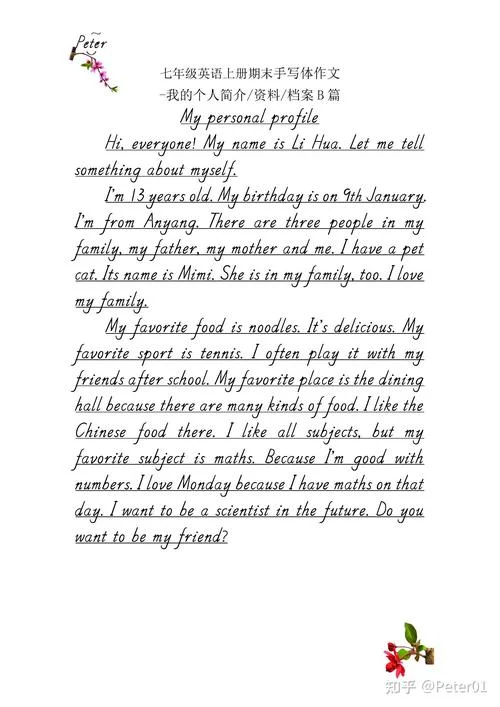 Peter
七年级英语上册期末手写体作文
-我的个人简介/资料/档案 B 篇
My personal profile
Hi, everyone! My name is Li Hua. Let me tell
something about myself.
I'm 13 years old. My birthday is on 9th January.
I'm from Anyang. There are three people in my
family, my father, my mother and me. I have a pet
cat. Its name is Mimi. She is in my family, too. I love
my family.
My favorite food is noodles. It's delicious. My
favorite sport is tennis. I often play it with my
friends after school. My favorite place is the dining
hall because there are many kinds of food. I like the
Chinese food there. I like all subjects, but my
favorite subject is maths. Because I'm good with
numbers. I love Monday because I have maths on that
day. I want to be a scientist in the future. Do you
want to be my friend?
知乎 @Peter01